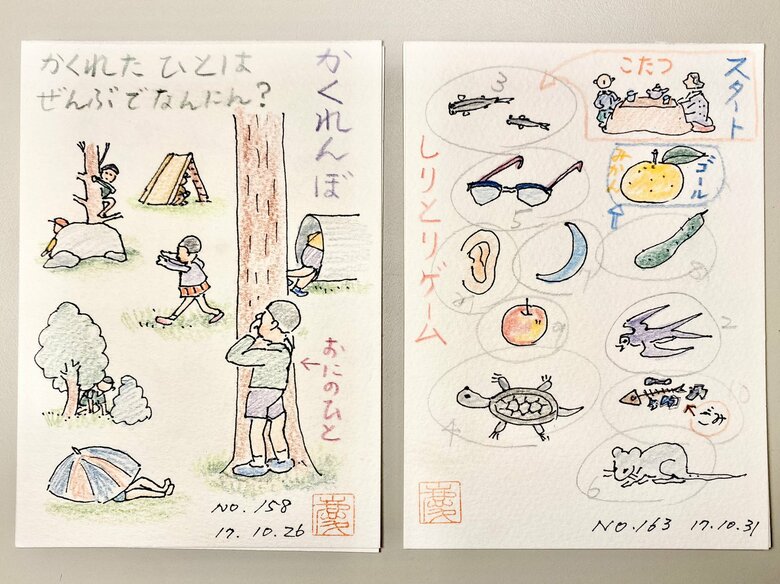 かくれんぼ
かくれた ひとは
ぜんぶでなんにん?
おにのひと
NO. 158
17. 10. 26
スタート
こたつ
3
しりとりゲーム
ゴール
みかん
5
2
ごみ
10
4
6
NO. 163 17. 10. 31